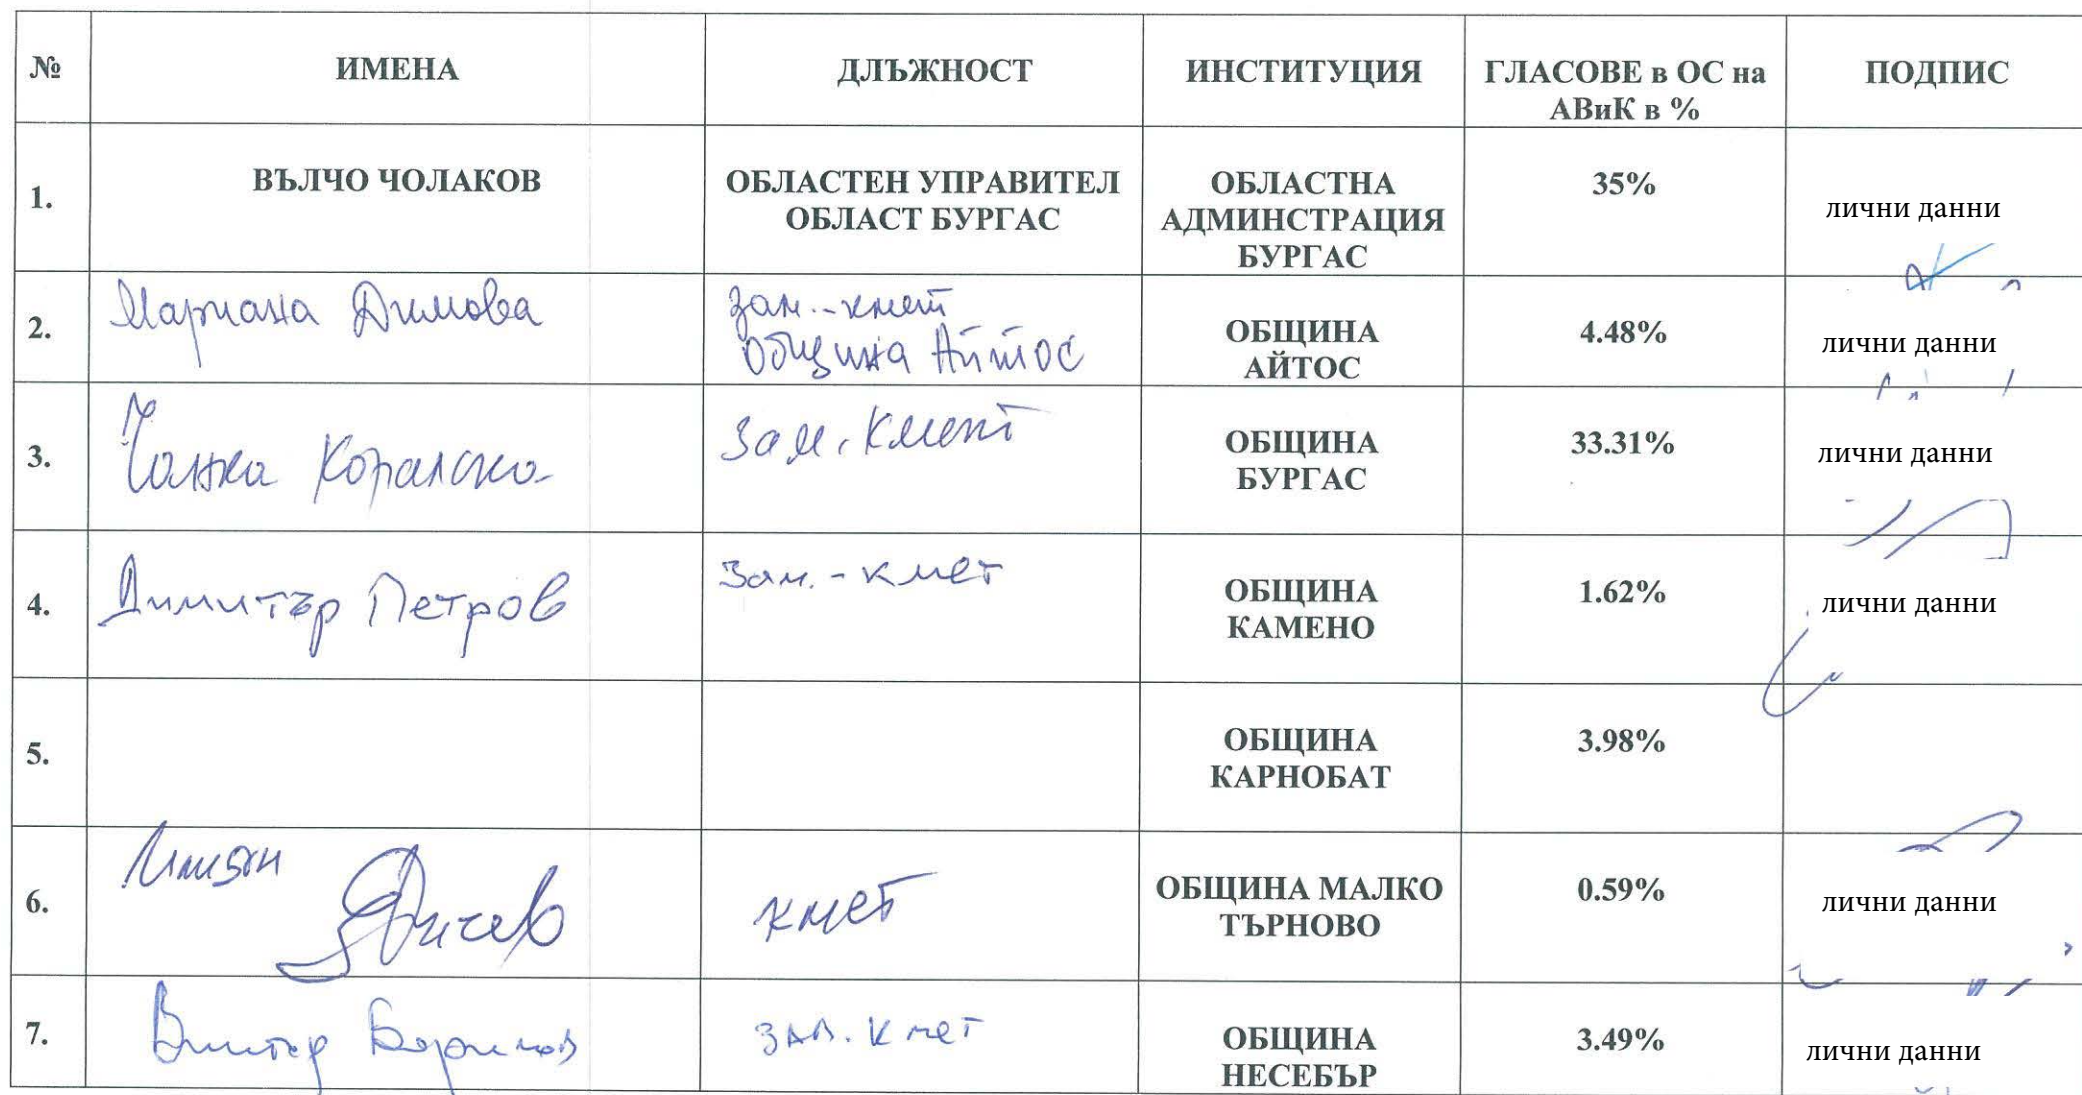 № ИМЕНА ДЛЪЖНОСТ ИНСТИТУЦИЯ ГЛАСОВЕ в ОС на АВиК в % ПОДПИС
1. ВЪЛЧО ЧОЛАКОВ ОБЛАСТЕН УПРАВИТЕЛ ОБЛАСТ БУРГАС ОБЛАСТНА АДМИНСТРАЦИЯ БУРГАС 35% лични данни
2. Мариана Димова зам.-кмет община Айтос ОБЩИНА АЙТОС 4.48% лични данни
3. Чанка Коралска зам. кмет ОБЩИНА БУРГАС 33.31% лични данни
4. Димитър Петров зам.-кмет ОБЩИНА КАМЕНО 1.62% лични данни
5. ОБЩИНА КАРНОБАТ 3.98%
6. Илиян Янчев кмет ОБЩИНА МАЛКО ТЪРНОВО 0.59% лични данни
7. Виктор Борисов зам. кмет ОБЩИНА НЕСЕБЪР 3.49% лични данни